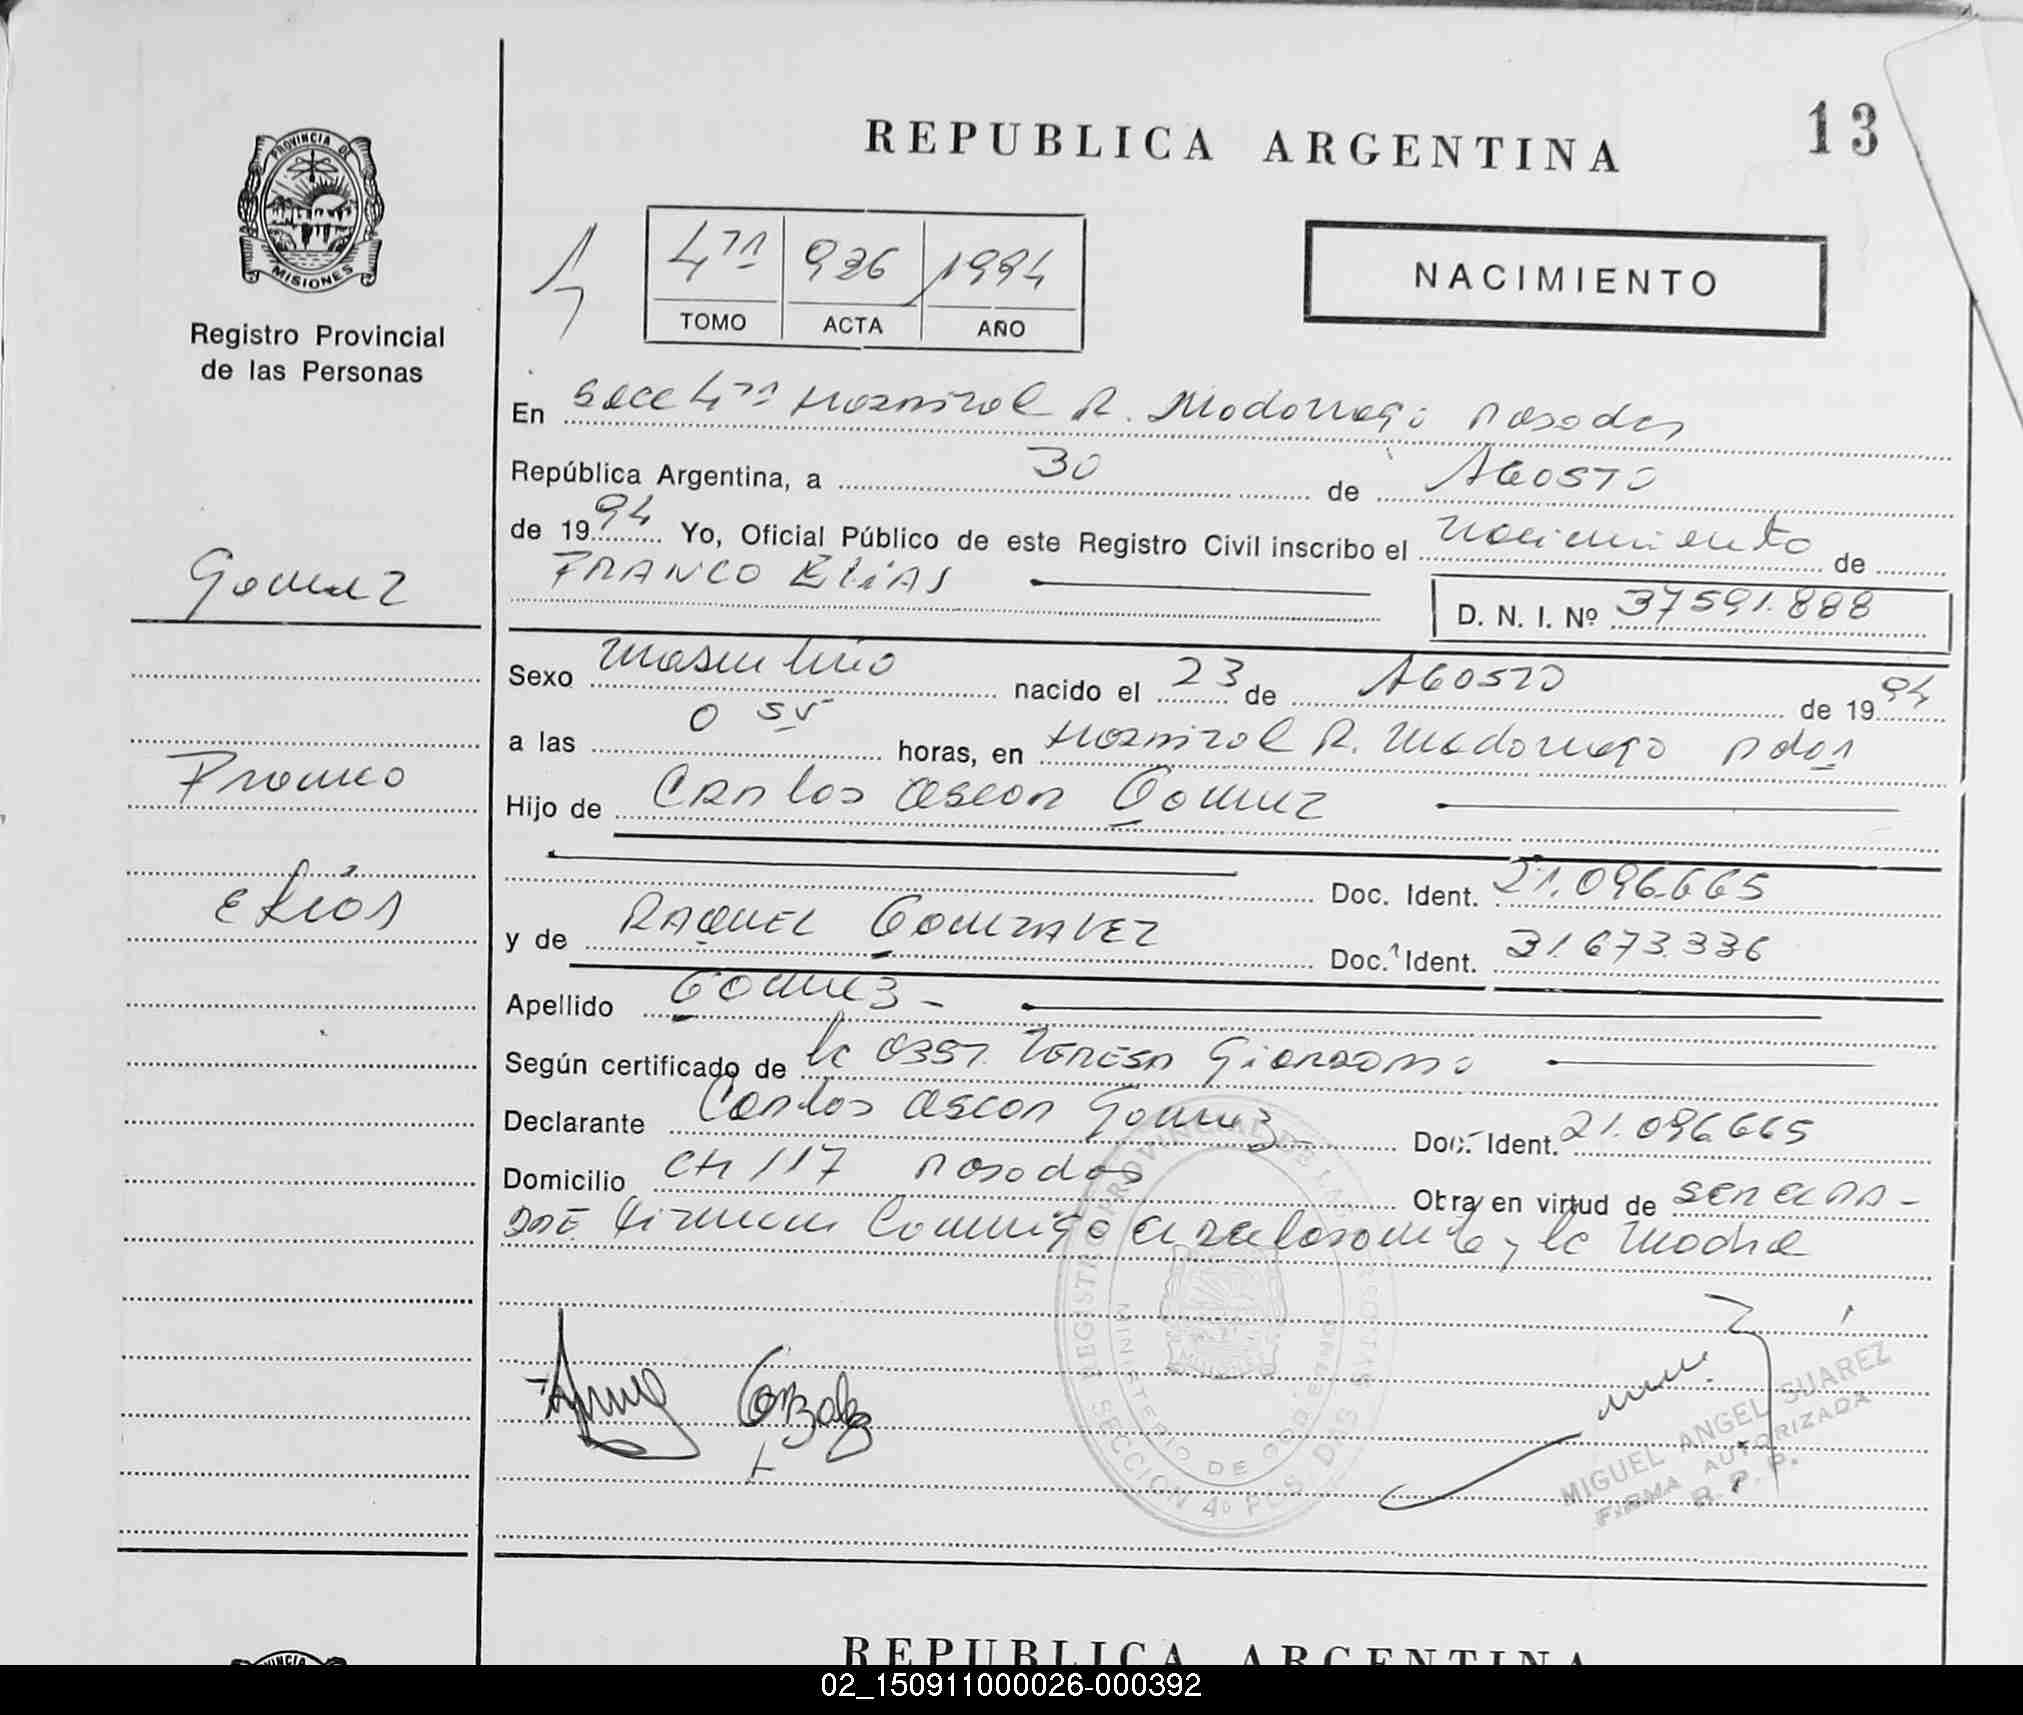 REPUBLICA ARGENTINA
13
PROVINCIA DE
MISIONES
Registro Provincial
de las Personas
4ta 936 1994
TOMO ACTA AÑO
NACIMIENTO
En Secc 4ta Hospital R. Madariaga Posadas
República Argentina, a 30 de AGOSTO
de 1994 Yo, Oficial Público de este Registro Civil inscribo el nacimiento de
FRANCO ELIAS
D. N. I. Nº 37591.888
Gomez
Franco
Elias
Sexo masculino nacido el 23 de AGOSTO de 1994
a las 0 55 horas, en Hospital R. Madariaga Pdas
Hijo de Carlos Oscar Gomez
Doc. Ident. 21.096.665
y de RAQUEL GONZALEZ Doc. Ident. 31.673.336
Apellido Gomez -
Según certificado de la Obst. Teresa
Declarante Carlos Oscar Gomez Doc. Ident. 21.096.665
Domicilio CH 117 Posadas Obra en virtud de ser el pa-
dre. Firman conmigo el declarante y la madre
Gonzalez
REGISTRO PROVINCIAL DE LAS PERSONAS
MINISTERIO DE GOBIERNO
SECCION 4º POSADAS
MIGUEL ANGEL SUAREZ
FIRMA AUTORIZADA
R. P. P.
REPUBLICA ARGENTINA
02_150911000026-000392